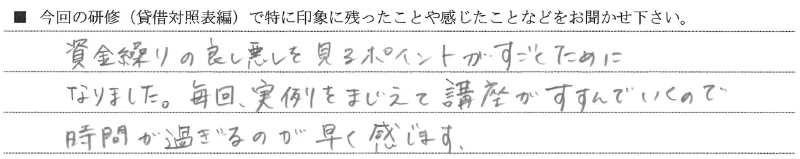 ■ 今回の研修（貸借対照表編）で特に印象に残ったことや感じたことなどをお聞かせ下さい。
資金繰りの良し悪しを見るポイントがすごくために
なりました。毎回、実例をまじえて講座がすすんでいくので
時間が過ぎるのが早く感じます。